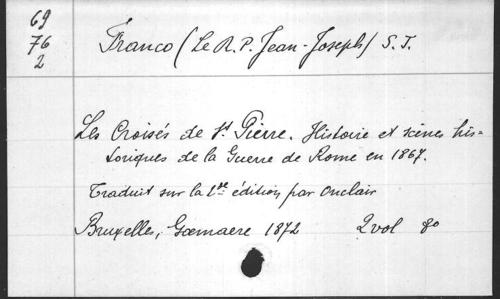 69
76
2
Franco (Le R. P. Jean-Joseph) S. J.
Les Croisés de St. Pierre. Histoire et scènes his-
toriques de la Guerre de Rome en 1867.
Traduit sur la 1re édition, par Onclair
Bruxelles, Goemaere 1872 2 vol 8o